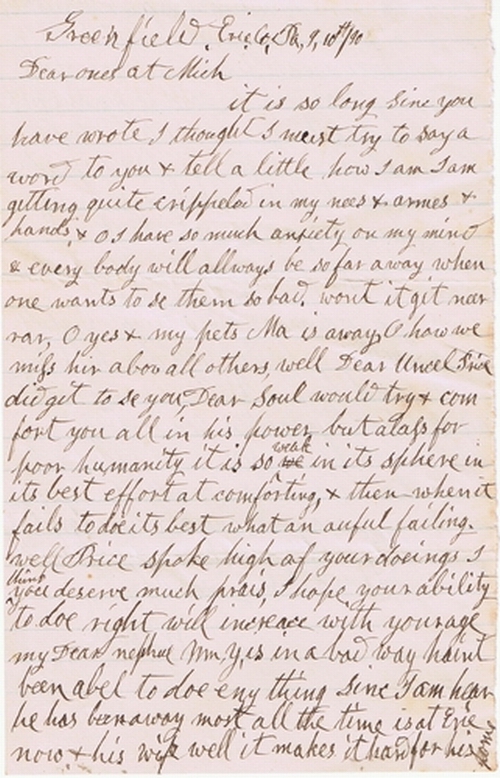 Greenfield, Erie Co, Pa, 9, 10th/90
Dear ones at Mich
it is so long sinc you
have wrote I thought I must try to say a
word to you & tell a little how I am I am
gitting quite crippeled in my nees & armes &
hands, & O I have so much anxiety on my mind
& every body will allways be so far away when
one wants to se them so bad. wont it git neer
rar, O yes & my pets Ma is away, O how we
miss hir abov all others, well Dear Uncel Price
did git to se you, Dear Soul would try & com
fort you all in his power, but alass for
poor humanity it is so weak in its sphere in
its best effort at comforting, & then when it
fails to doe its best what an auful failing.
well Price spoke high of your doeings I
think you deserve much prais, I hope your ability
to doe right will increace with your age
my Dear nephue Wm, Y, is in a bad way haint
been abel to doe eny thing sinc I am hear
he has been away most all the time is at Erie
now, & his wife well it makes it hard for his